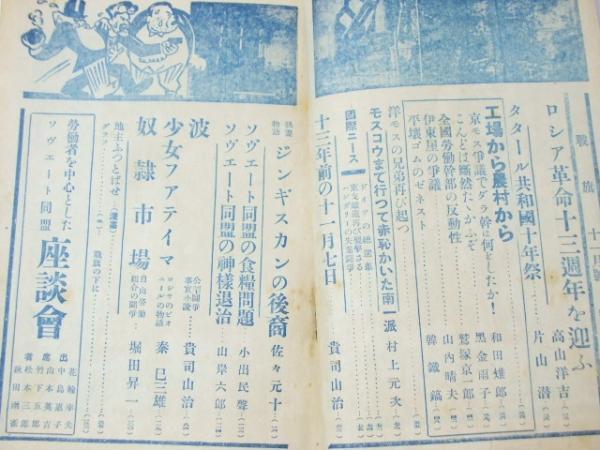 戰旗
十一月號
ロシア革命十三週年を迎ふ
高山洋吉
タタール共和國十年祭
片山潜
工場から農村から
京モス爭議でダラ幹は何をしたか!
和田雄郎
こんどは斷然たゝかふぞ
黑金雨子
全國勞働幹部の反動性
鷲塚京一郎
伊東屋の爭議
山内晴夫
平壤ゴムのゼネスト
韓鐵鎬
洋モスの兄弟再び起つ
モスコウまで行つて赤恥かいた南一派
村上元次
國際ニース
ドイツの總選擧
東支鐵道再び襲撃さる
ハンガリーの失業鬪爭
十三年前の十一月七日
貴司山治
映畫物語
ジンギスカンの後裔
佐々元十
ソヴエート同盟の食糧問題
小出民聲
ソヴエート同盟の神樣退治
山岸六郎
波
公判鬪爭事實小說
貴司山治
少女フアテイマ
ロシヤのピオニールの物語
秦巳三雄
奴隷市場
自由勞働組合の鬪爭
堀田昇一
地主ふつとばせ
(漫畫)
グラフ
戰旗の下に
勞働者を中心とした
ソヴエート同盟
座談會
出席者
花輪幸夫
中島惠子
山本英吉
竹下五郎
松本三郎